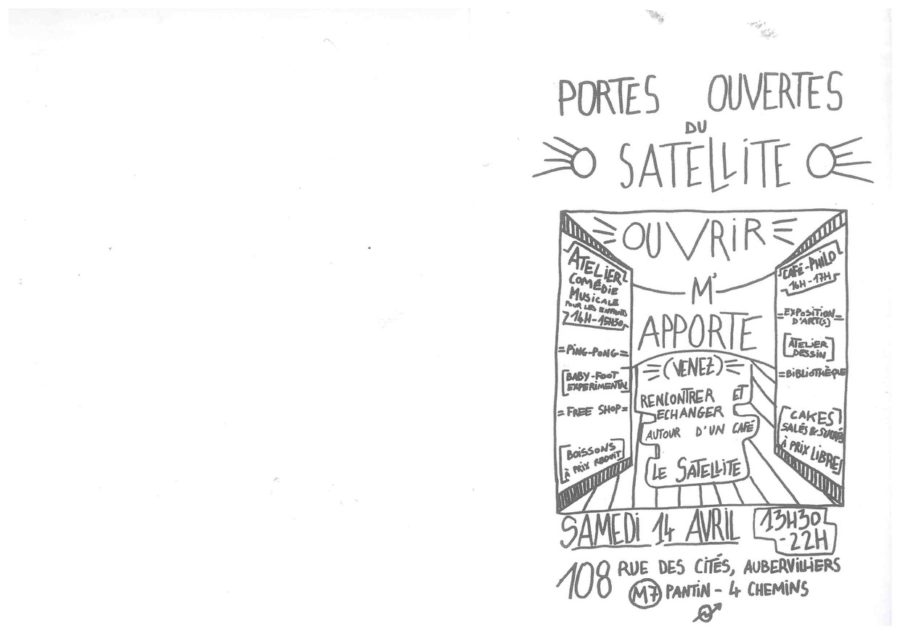 PORTES OUVERTES
DU
SATELLITE
OUVRIR
M'
APPORTE
(VENEZ)
RENCONTRER ET
ECHANGER
AUTOUR D'UN CAFÉ
LE SATELLITE
ATELIER
COMÉDIE
MUSICALE
POUR LES ENFANTS
14H-15H30
=PING-PONG=
BABY-FOOT
EXPERIMENTAL
=FREE SHOP=
BOISSONS
À PRIX REDUIT
CAFÉ-PHILO
16H-17H
=EXPOSITION=
D'ART(S)
ATELIER
DESSIN
=BIBLIOTHÈQUE
CAKES
SALÉS & SUCRÉS
À PRIX LIBRE
SAMEDI 14 AVRIL
13H30
-22H
108 RUE DES CITÉS, AUBERVILLIERS
M7 PANTIN - 4 CHEMINS